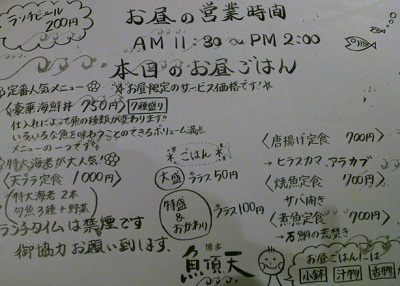 ランチビール
200円
お昼の営業時間
AM 11:30～PM 2:00
本日のお昼ごはん
定番人気メニュー
お昼限定のサービス価格です！
〈豪華海鮮丼 950円〉 7種盛り
仕入れによって魚の種類が変わります!!
いろいろな魚を味わうことのできるボリューム満点
メニューの一つです
特大海老が大人気！
〈天ぷら定食 1000円〉
特大海老 2本
夕魚3種+野菜
ランチタイムは禁煙です
御協力お願い致します。
ごはん
大盛 プラス50円
特盛&おかわり プラス100円
〈唐揚げ定食 700円〉
→ヒラスカマ、アラカブ
〈焼魚定食 700円〉
サバ開き
〈煮魚定食 700円〉
→石鯛の荒焚き
博多
魚頂天
お昼ごはんには
小鉢 汁物 香物